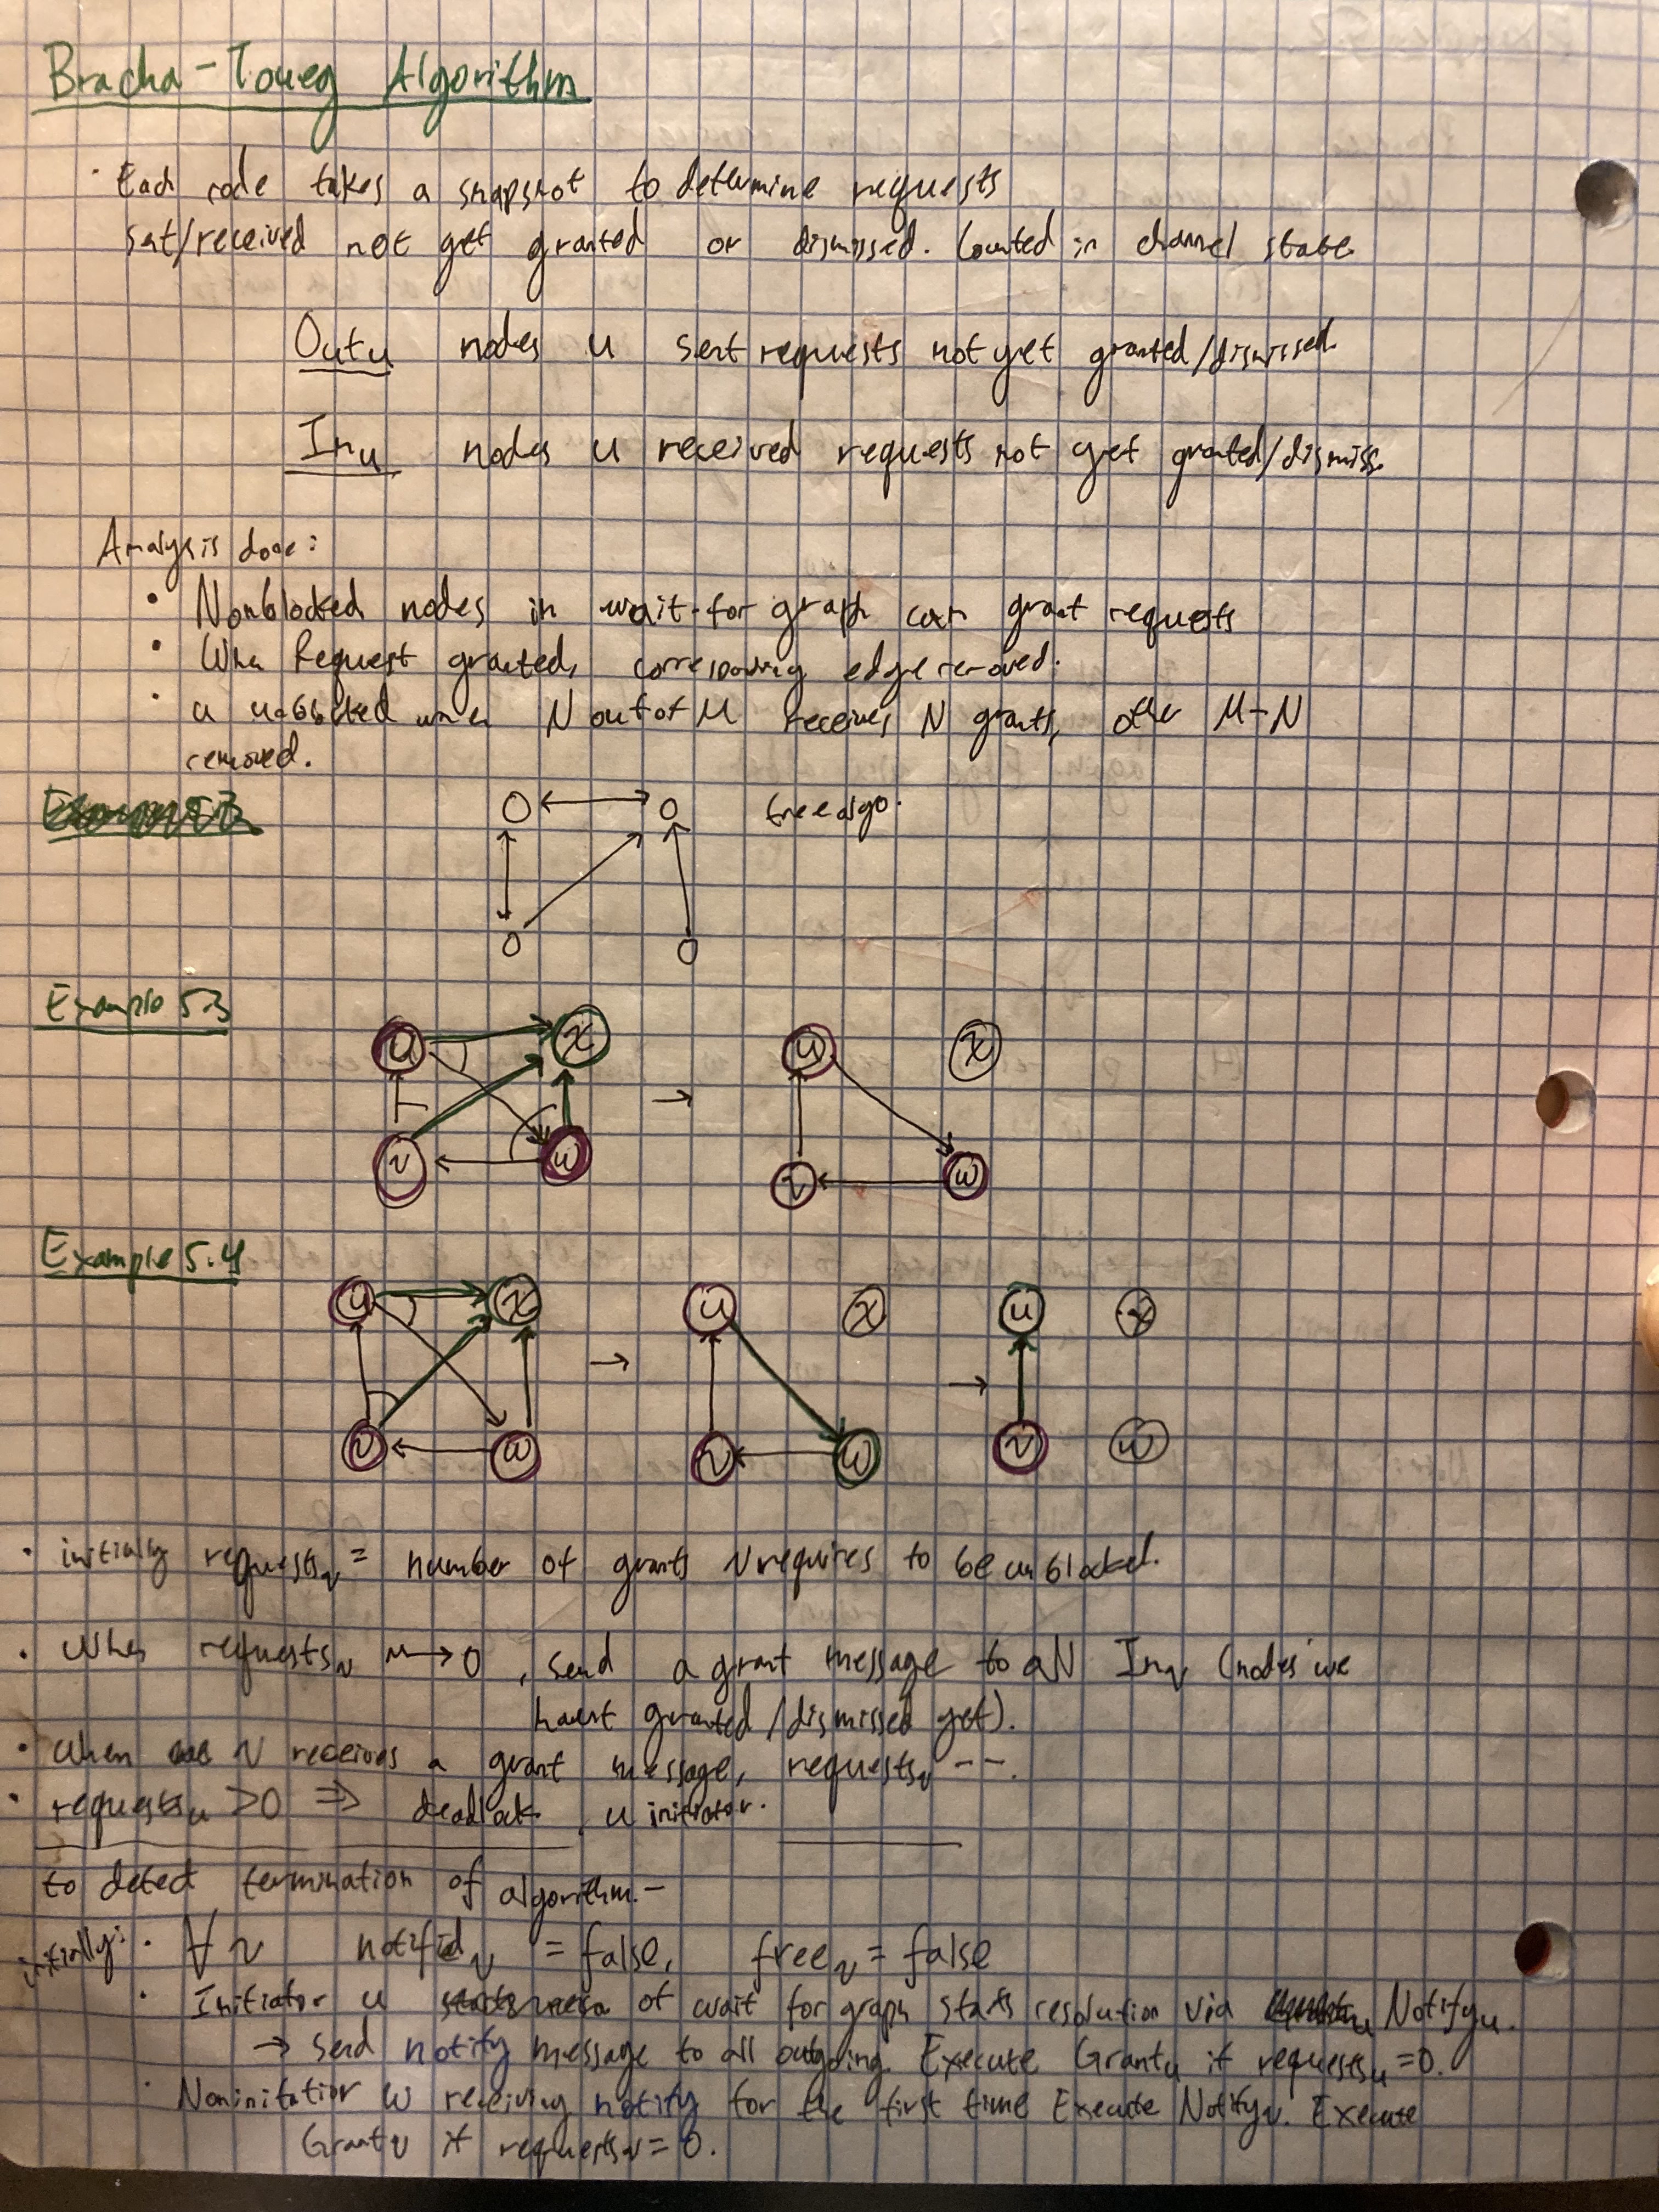 Bracha-Toueg Algorithm
· Each node takes a snapshot to determine requests
sent/received not yet granted or dismissed. Counted in channel state.
Outu nodes u sent requests not yet granted/dismissed.
Inu nodes u received requests not yet granted/dismiss.
Analysis done:
· Nonblocked nodes in wait-for graph can grant requests
· When Request granted, corresponding edge removed.
· u unblocked when N out of M receives N grants, other M-N
removed.
tree algo.
Example 5.3
u x u x
→
v w v w
Example 5.4
u x u x u x
→ →
v w v w v w
· initially requestsv = number of grants v requires to be unblocked.
· When requestsv → 0, send a grant message to all Inv (nodes we
havent granted/dismissed yet).
· when v receives a grant message, requestsv --.
· requestsu > 0 ⇒ deadlock. u initiator.
to detect termination of algorithm.-
initially: · ∀ v notifiedv = false, freev = false
· Initiator u of wait for graph starts resolution via Notifyu.
→ send notify message to all outgoing. Execute Grantu if requestsu = 0.
· Noninitiatior w receiving notify for the first time Execute Notifyv. Execute
Grantv if requestsv = 0.